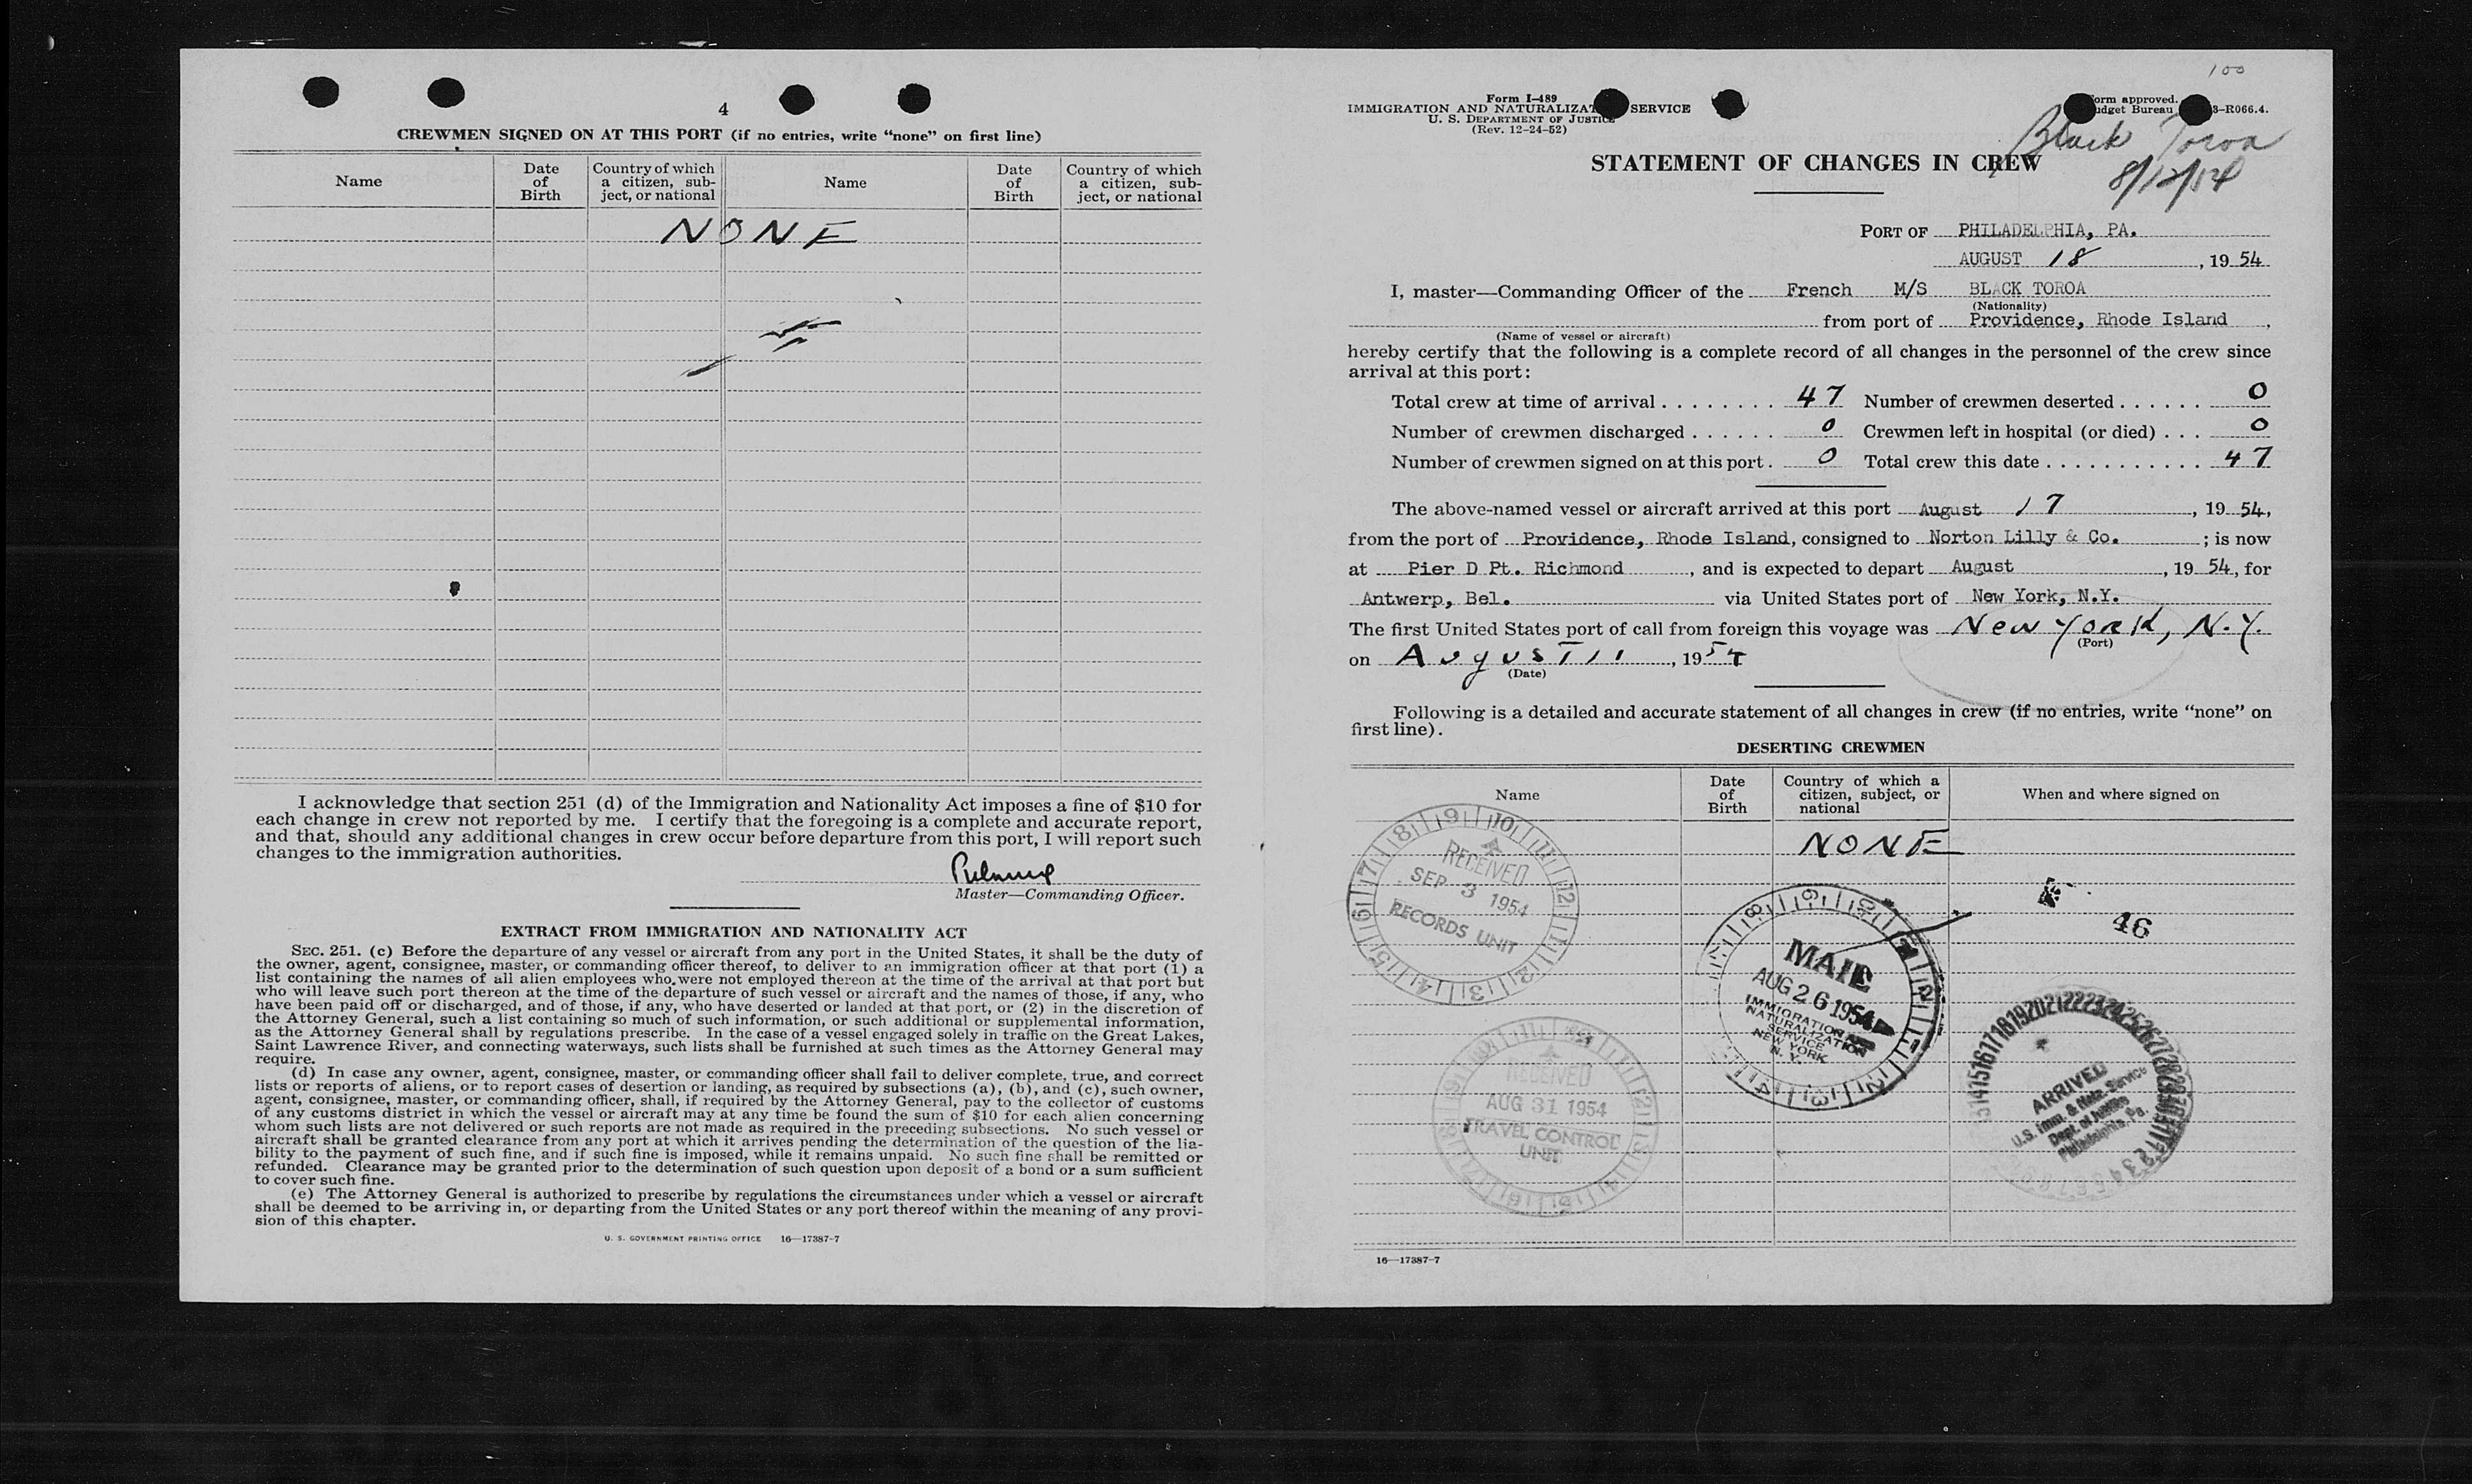 4
CREWMEN SIGNED ON AT THIS PORT (if no entries, write “none” on first line)
Name
Date of Birth
Country of which a citizen, sub-ject, or national
Name
Date of Birth
Country of which a citizen, sub-ject, or national
NONE
I acknowledge that section 251 (d) of the Immigration and Nationality Act imposes a fine of $10 for
each change in crew not reported by me. I certify that the foregoing is a complete and accurate report,
and that, should any additional changes in crew occur before departure from this port, I will report such
changes to the immigration authorities.
Master—Commanding Officer.
EXTRACT FROM IMMIGRATION AND NATIONALITY ACT
SEC. 251. (c) Before the departure of any vessel or aircraft from any port in the United States, it shall be the duty of
the owner, agent, consignee, master, or commanding officer thereof, to deliver to an immigration officer at that port (1) a
list containing the names of all alien employees who were not employed thereon at the time of the arrival at that port but
who will leave such port thereon at the time of the departure of such vessel or aircraft and the names of those, if any, who
have been paid off or discharged, and of those, if any, who have deserted or landed at that port, or (2) in the discretion of
the Attorney General, such a list containing so much of such information, or such additional or supplemental information,
as the Attorney General shall by regulations prescribe. In the case of a vessel engaged solely in traffic on the Great Lakes,
Saint Lawrence River, and connecting waterways, such lists shall be furnished at such times as the Attorney General may
require.
(d) In case any owner, agent, consignee, master, or commanding officer shall fail to deliver complete, true, and correct
lists or reports of aliens, or to report cases of desertion or landing, as required by subsections (a), (b), and (c), such owner,
agent, consignee, master, or commanding officer, shall, if required by the Attorney General, pay to the collector of customs
of any customs district in which the vessel or aircraft may at any time be found the sum of $10 for each alien concerning
whom such lists are not delivered or such reports are not made as required in the preceding subsections. No such vessel or
aircraft shall be granted clearance from any port at which it arrives pending the determination of the question of the lia-
bility to the payment of such fine, and if such fine is imposed, while it remains unpaid. No such fine shall be remitted or
refunded. Clearance may be granted prior to the determination of such question upon deposit of a bond or a sum sufficient
to cover such fine.
(e) The Attorney General is authorized to prescribe by regulations the circumstances under which a vessel or aircraft
shall be deemed to be arriving in, or departing from the United States or any port thereof within the meaning of any provi-
sion of this chapter.
U. S. GOVERNMENT PRINTING OFFICE 16—17387-7
100
Form I-489
IMMIGRATION AND NATURALIZAT SERVICE
U. S. DEPARTMENT OF JUSTICE
(Rev. 12-24-52)
orm approved.
udget Bureau 3-R066.4.
Black Toroa
STATEMENT OF CHANGES IN CREW
PORT OF PHILADELPHIA, PA.
AUGUST 18, 1954
I, master—Commanding Officer of the French M/S BLACK TOROA
(Nationality)
from port of Providence, Rhode Island,
(Name of vessel or aircraft)
hereby certify that the following is a complete record of all changes in the personnel of the crew since
arrival at this port:
Total crew at time of arrival 47 Number of crewmen deserted 0
Number of crewmen discharged 0 Crewmen left in hospital (or died) 0
Number of crewmen signed on at this port 0 Total crew this date 47
The above-named vessel or aircraft arrived at this port August 17, 1954,
from the port of Providence, Rhode Island, consigned to Norton Lilly & Co.; is now
at Pier D Pt. Richmond, and is expected to depart August, 1954, for
Antwerp, Bel. via United States port of New York, N.Y.
The first United States port of call from foreign this voyage was New York, N.Y.
(Port)
on August 11, 1954
(Date)
Following is a detailed and accurate statement of all changes in crew (if no entries, write “none” on
first line).
DESERTING CREWMEN
Name
Date of Birth
Country of which a citizen, subject, or national
When and where signed on
NONE
RECEIVED
SEP 3 1954
RECORDS UNIT
46
AUG 26 1954
IMMIGRATION
NATURALIZATION
SERVICE
NEW YORK
N. Y.
RECEIVED
AUG 31 1954
TRAVEL CONTROL
UNIT
ARRIVED
U.S. Imm. & Natz. Service
Dept. of Justice
Philadelphia, Pa.
16—17387-7